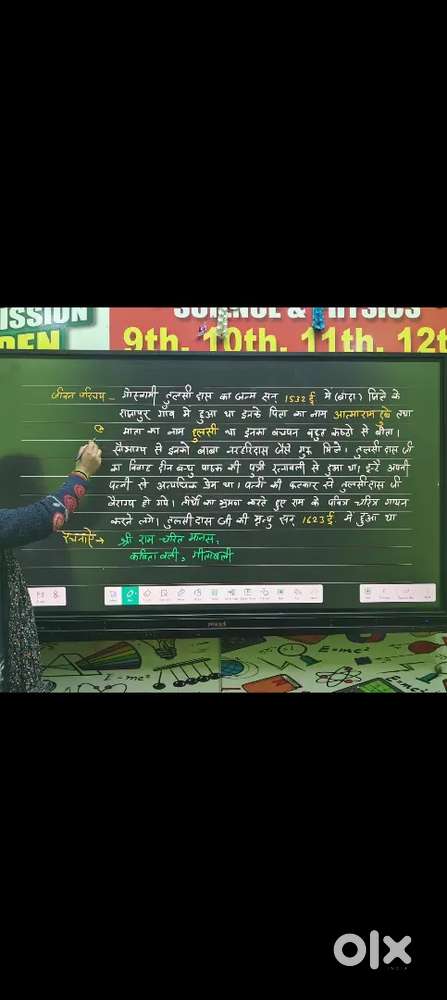 ISSION
DEN
SCIENCE & PHYSICS
9th, 10th, 11th, 12t
जीवन परिचय - गोस्वामी तुलसी दास का जन्म सन् 1532 ई में (बांदा) जिले के
राजापुर गाँव में हुआ था इनके पिता का नाम आत्माराम दुबे तथा
माता का नाम हुलसी था इनका बचपन बहुत कष्टो से बीता।
सौभाग्य से इनको बाबा नरहरिदास जैसे गुरु मिले। तुलसीदास जी
का विवाह दीन बन्धु पाठक की पुत्री रत्नावली से हुआ था। इन्हे अपनी
पत्नी से अत्यधिक प्रेम था। पत्नी की फटकार से तुलसीदास जी
वैराग्य हो गये। तीर्थो का भ्रमण करते हुए राम के पवित्र चरित्र गायन
करने लगे। तुलसीदास जी की मृत्यु सन् 1623 ई में हुआ था
रचनाएँ → श्री राम चरित मानस,
कविता वली, गीतावली
E=mc²
I=mc²
olx
INDIA